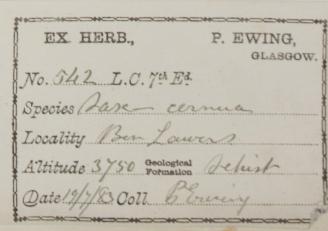 EX HERB., P. EWING,
GLASGOW.
No. 542 L.C. 7th Ed.
Species Saxe cernua
Locality Ben Lawers
Altitude 3750 Geological Formation Schist
Date 19/7/83 Coll P Ewing